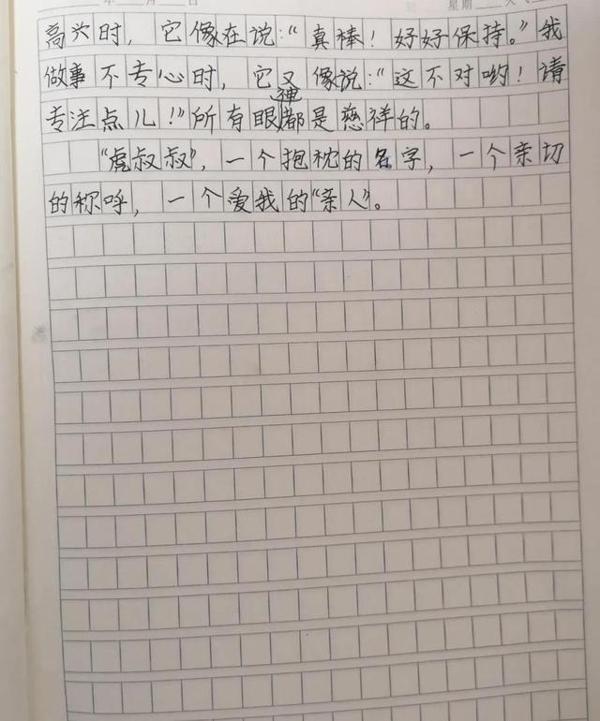 年 月 日 星期 天气
高兴时，它像在说：“真棒！好好保持。”我
做事不专心时，它又像说：“这不对哟！请
专注点儿！”所有眼神都是慈祥的。
“虎叔叔”，一个抱枕的名字，一个亲切
的称呼，一个爱我的“亲人”。